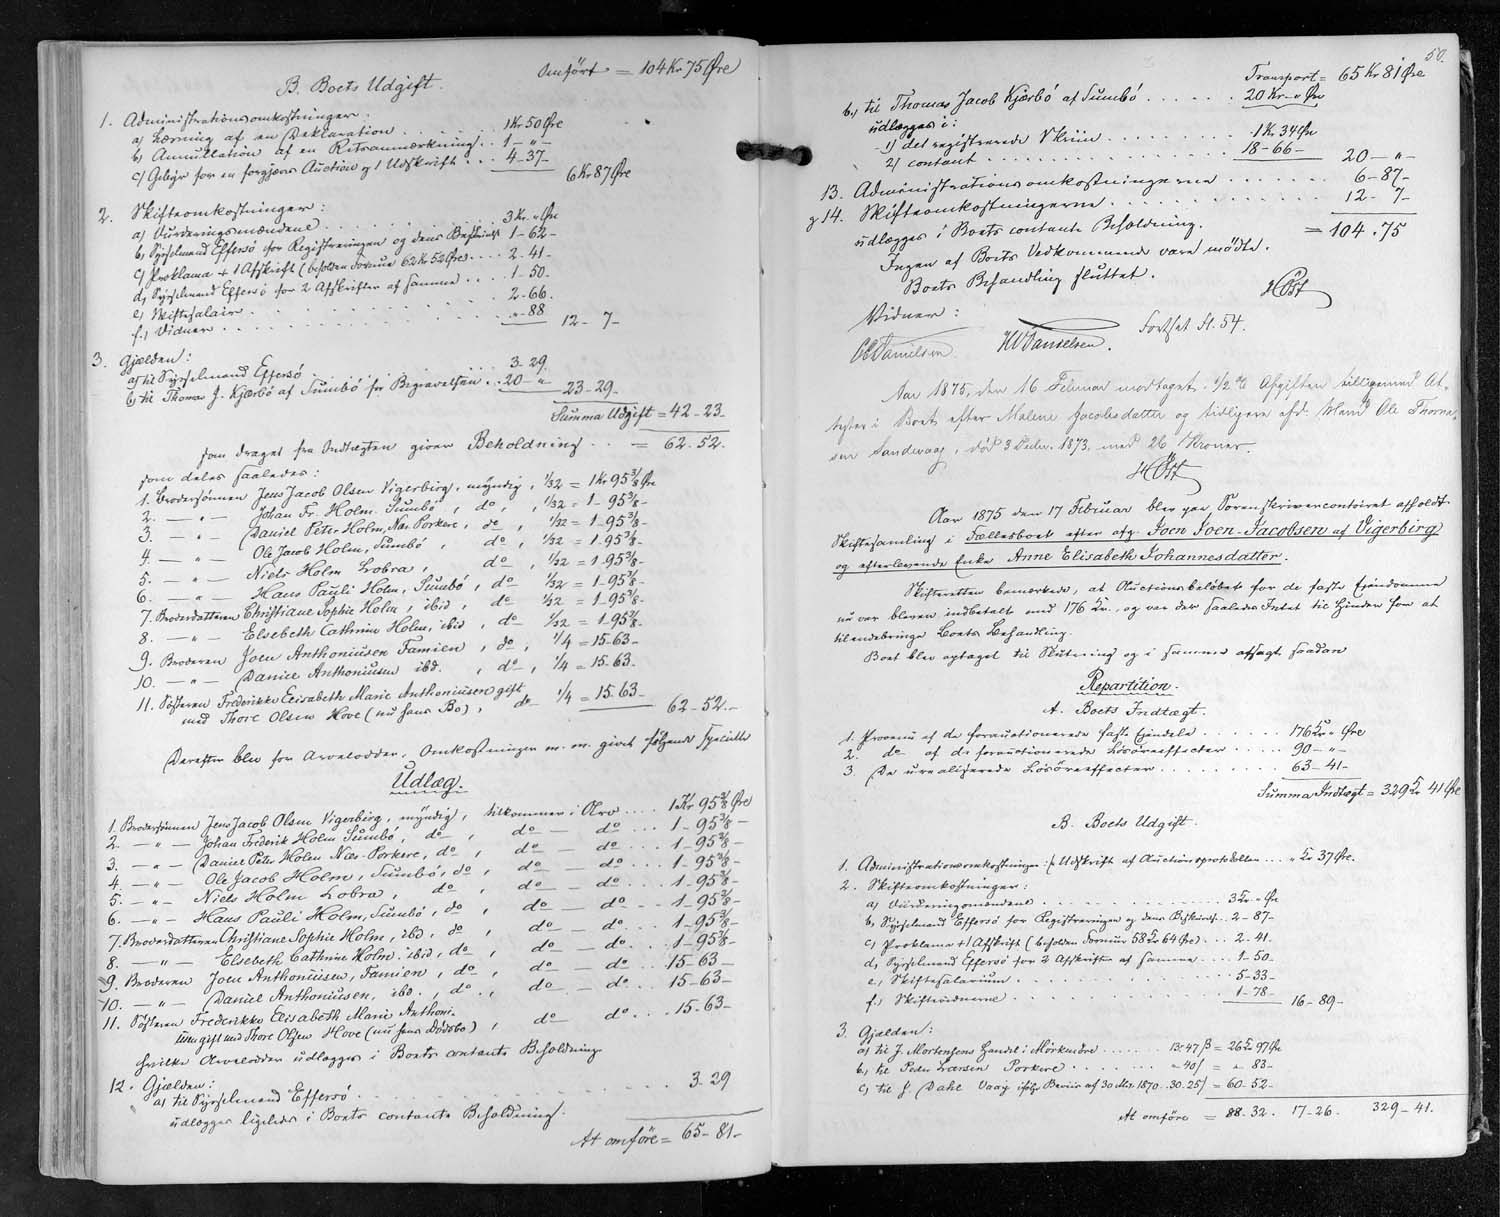 Omført = 104 Kr 75 Øre
B. Boets Udgift.
1. Administrationsomkostninger.
a) Læsning af en Deklaration . . . . 1 Kr 50 Øre
b) Annullation af en Retsanmærkning . . 1 - " -
c) Gebyr for en forgjæves Auction og 1 Udskrift . . . 4-37-
6 Kr 87 Øre
2. Skifteomkostninger:
a) Vurderingsmændene . . . . 3 Kr. " Øre
b) Sysselmand Effersö for Registreringen og dens Beskrivelse 1-62-
c) Proklama + 1 Afskrift (beholden Formue 62 Kr 52 Øre) . . . 2-41-
d) Sysselmand Effersö for 2 Afskrifter af samme . . . 1-50.
e) Skiftesalair . . . . 2-66.
f) Vidner . . . . " - 88
12 - 7 -
3. Gjælden:
a) til Sysselmand Effersö . . . . 3-29.
b) til Thomas J. Kjærbö af Sumbö for Begravelsen . . 20 - " -
23-29-
Summa Udgift = 42-23-
som draget fra Indtægten giver Beholdning . . = 62-52.
som deles saaledes:
1. Brodersönnen Jens Jacob Olsen Vigerbirg, myndig, 1/32 = 1 Kr 95 3/8 Øre
2. - " - Johan Fr. Holm. Sumbö, do, 1/32 = 1-95 3/8-
3. - " - Daniel Peter Holm, Næs Porkere, do, 1/32 = 1-95 3/8-
4. - " - Ole Jacob Holm, Sumbö, do, 1/32 = 1-95 3/8-
5. - " - Niels Holm Lobra, do, 1/32 = 1-95 3/8-
6. - " - Hans Pauli Holm, Sumbö, do 1/32 = 1-95 3/8-
7. Broderdatteren Christiane Sophie Holm, ibid, do 1/32 = 1-95 3/8-
8. - " - Elsebeth Cathrine Holm, ibid, do 1/32 = 1-95 3/8-
9. Broderen Joen Anthoniusen Famien, do, 1/4 = 15-63-
10. - " - Daniel Anthoniusen ibd., do, 1/4 = 15-63-
11. Søsteren Frederikke Elisabeth Marie Anthoniusen gift
med Thore Olsen Hove (nu hans Bo), do 1/4 = 15-63-
62-52.-
Derefter blev for Arvelodder, Omkostninger m. m. givet følgende specielle
Udlæg.
1. Brodersönnen Jens Jacob Olsen Vigerbirg, myndig, tilkommer i Arv . . . 1 Kr 95 3/8 Øre
2. - " - Johan Frederik Holm Sumbö, do, do - do . . . 1-95 3/8-
3. - " - Daniel Peter Holm Næs-Porkere, do, do - do . . . 1-95 3/8-
4. - " - Ole Jacob Holm, Sumbö, do, do - do . . . 1-95 3/8-
5. - " - Niels Holm Lobra, do, do - do . . . 1-95 3/8-
6. - " - Hans Pauli Holm, Sumbö, do, do - do . . . 1-95 3/8-
7. Broderdatteren Christiane Sophie Holm, ibd, do, do - do . . . 1-95 3/8-
8. - " - Elsebeth Cathrine Holm ibid, do, do - do . . . 1-95 3/8-
9. Broderen Joen Anthoniusen, Famien, do, do - do . . . 15-63-
10. - " - Daniel Anthoniusen, ibd., do., do - do . . . 15-63-
11. Søsteren Frederikke Elisabeth Marie Anthoni-
usen gift med Thore Olsen Hove (nu hans Dødsbo), do do . . . 15-63-
hvilke Arvelodder udlægges i Boets contante Beholdning
12. Gjælden:
a) til Sysselmand Effersö . . . . 3-29
udlægges ligeledes i Boets contante Beholdning.
At omföre = 65-81-
50.
Transport = 65 Kr 81 Øre
b) til Thomas Jacob Kjærbö af Sumbö . . . . 20 Kr - " Øre
udlægges i:
1) det registrerede Skriin . . . . 1 Kr 34 Øre
2) contant . . . . 18-66-
20 - " -
13. Administrationsomkostningerne . . . . 6-87-
og 14. Skifteomkostningerne . . . . 12-7-
udlægges i Boets contante Beholdning. = 104.75
Ingen af Boets Vedkommende vare mødte.
Boets Behandling sluttet.
HØst
Vidner:
Fortsat fl. 54.
OE Danielsen. HV Danielsen.
Aar 1875, den 16 Februar modtaget 1/2 % Afgiften tilligemed At-
tester i Boet efter Malene Jacobsdatter og tidligere afd. Mand Ole Thoma-
sen Sandevaag, død 3 Decbr. 1873, med 26 Kroner.
HØst
Aar 1875 den 17 Februar blev paa Sorenskrivercontoiret afholdt
Skiftesamling i Fællesboet efter afg. Joen Joen-Jacobsen af Vigerbirg
og efterlevende Enke Anne Elisabeth Johannesdatter.
Skifteretten bemærkede, at Auctionsbeløbet for de faste Eiendomme
nu var bleven indbetalt med 176 Kr., og var der saaledes Intet til Hinder for at
tilendebringe Boets Behandling.
Boet blev optaget til Slutning og i samme afsagt saadan
Repartition.
A. Boets Indtægt.
1. Provenu af de forauctionerede faste Eiendele . . . . 176 Kr " Øre
2. do af de forauctionerede Løsøreeffecter . . . . 90 - " -
3. De urealiserede Løsøreeffecter . . . . 63-41-
Summa Indtægt = 329 Kr 41 Øre
B. Boets Udgift.
1. Administrationsomkostninger: for Udskrift af Auctionsprotokollen . . . " Kr 37 Øre.
2. Skifteomkostninger:
a) Vurderingsmændene . . . . 3 Kr " Øre
b) Sysselmand Effersö for Registreringen og dens Beskrivelse . . 2-87-
c) Proklama + 1 Afskrift (beholden Formue 58 Kr 64 Øre) . . . 2-41.
d) Sysselmand Effersö for 2 Afskrifter af samme . . . . 1-50-
e) Skiftesalarium . . . . 5-33-
f) Skiftevidnerne . . . . 1-78-
16-89-
3. Gjælden:
a) til J. Mortensens Handel i Mörkenöre . . . . 13r 47 β = 26 Kr 97 Øre
b) til Peder Larsen Porkere . . . . " 40 β = " - 83-
c) til J. Dahl Vaag ifølge Beviis af 30 Mr. 1870 . . 30.25 β = 60-52-
At omföre = 88-32. 17-26. 329-41.